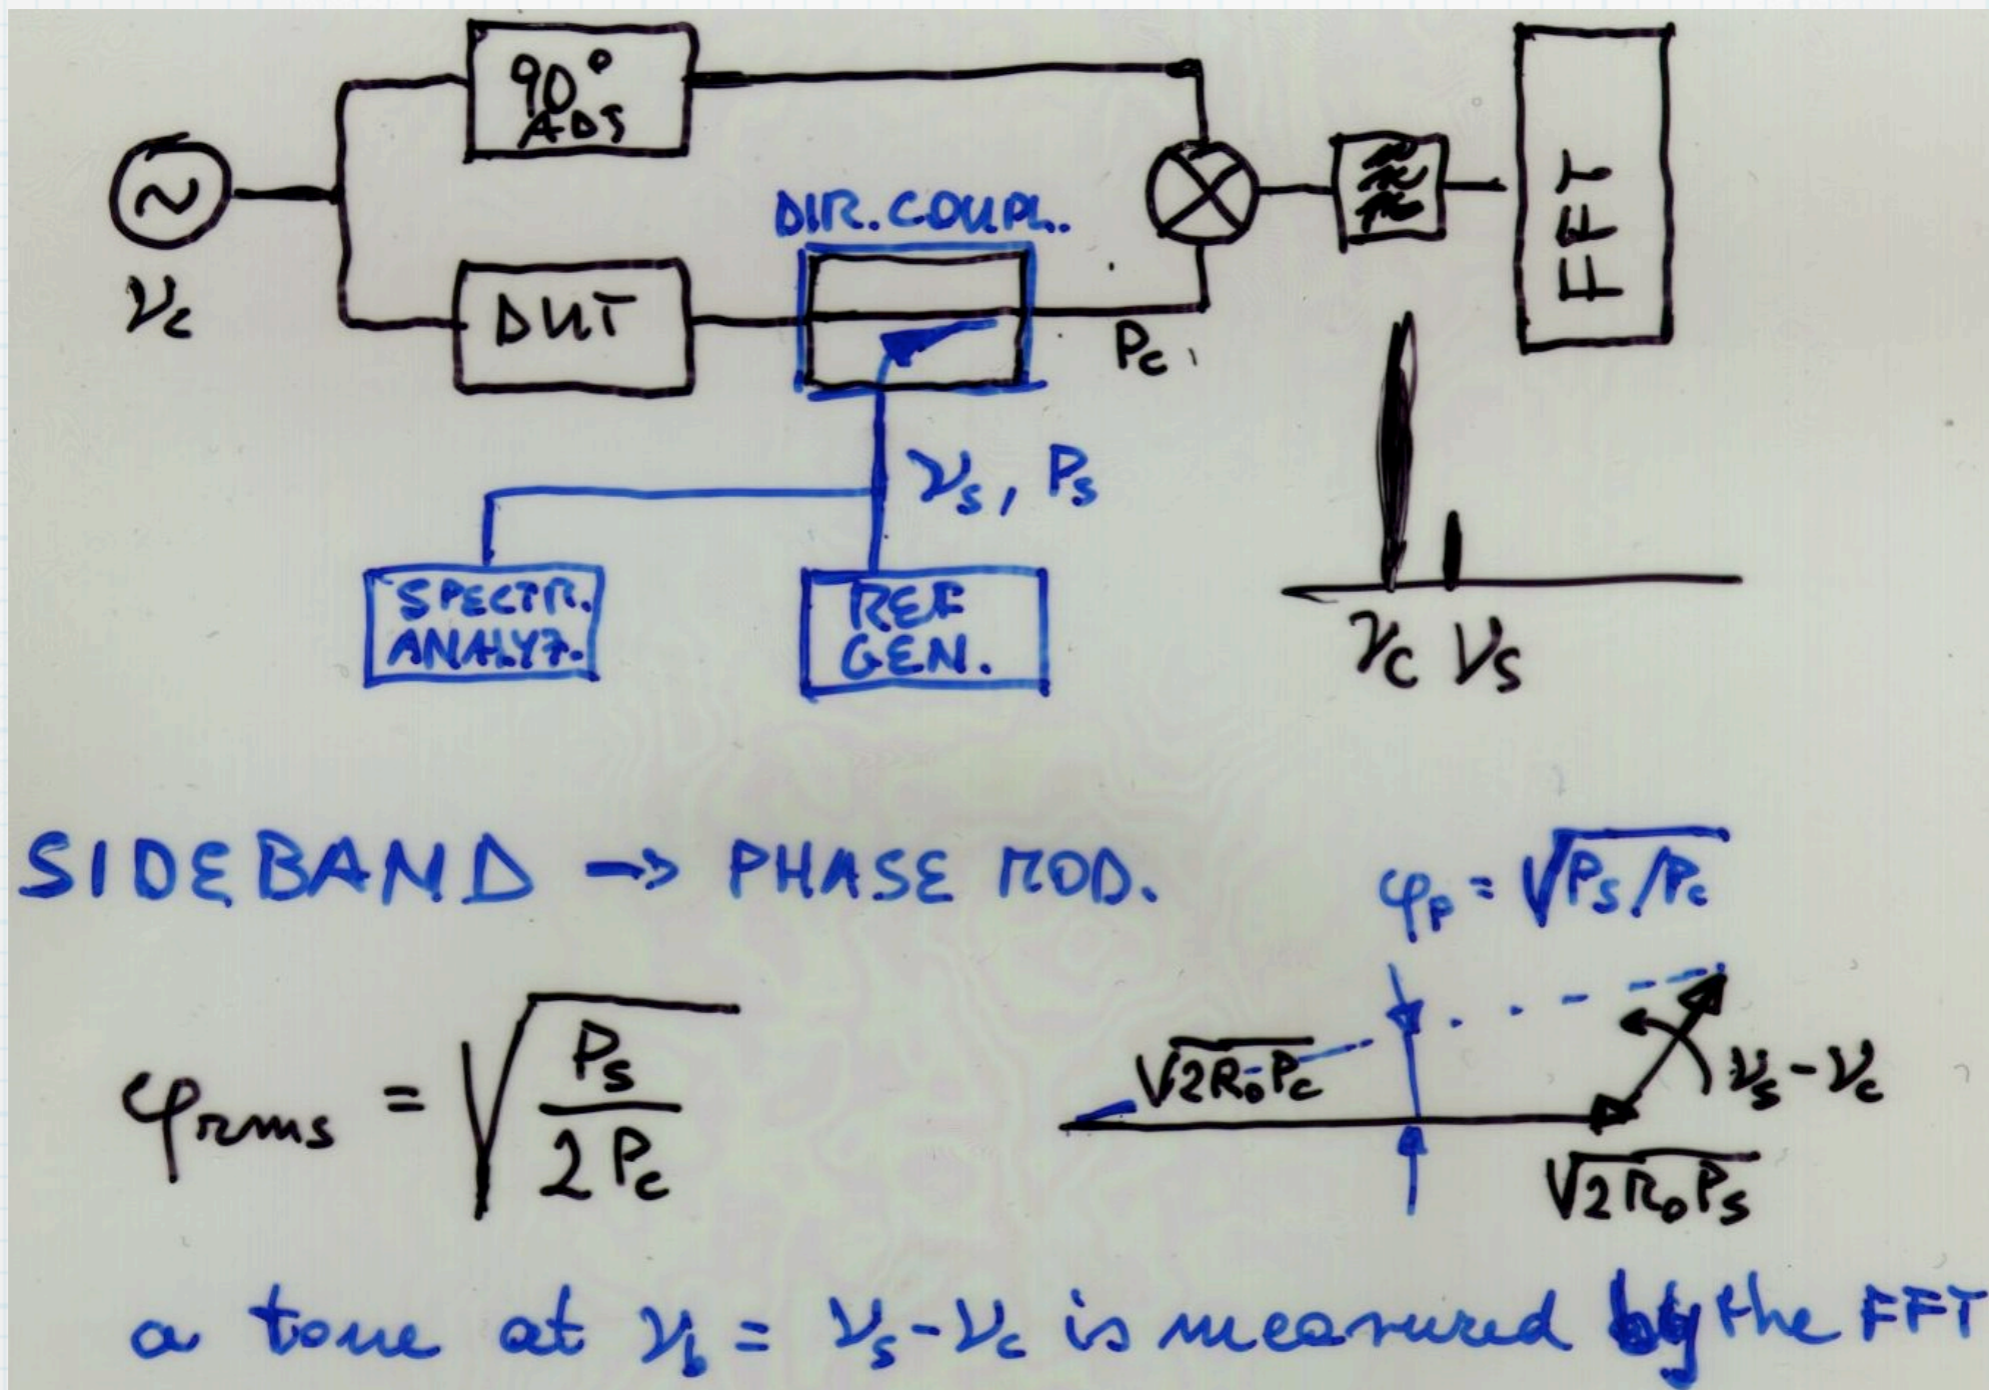 90°
ADJ
DIR. COUPL.
νc
DUT
Pc
FFT
νs, Ps
SPECTR.
ANALYZ.
REF
GEN.
νc νs
SIDEBAND → PHASE MOD.
φp = √Ps/Pc
φrms = √Ps/2Pc
√2R₀Pc
νs-νc
√2R₀Ps
a tone at νb = νs-νc is measured by the FFT